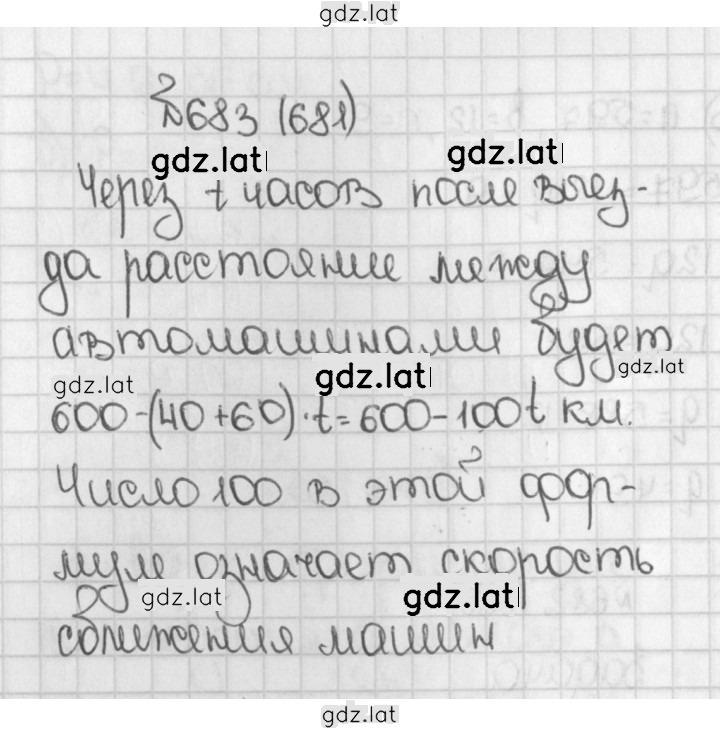 gdz.lat
№683 (681)
gdz.lat gdz.lat
Через t часов после выез-
да расстояние между
автомашинами будет
gdz.lat gdz.lat gdz.lat
600-(40+60)·t=600-100t км.
Число 100 в этой фор-
муле означает скорость
gdz.lat gdz.lat
сближения машин
gdz.lat